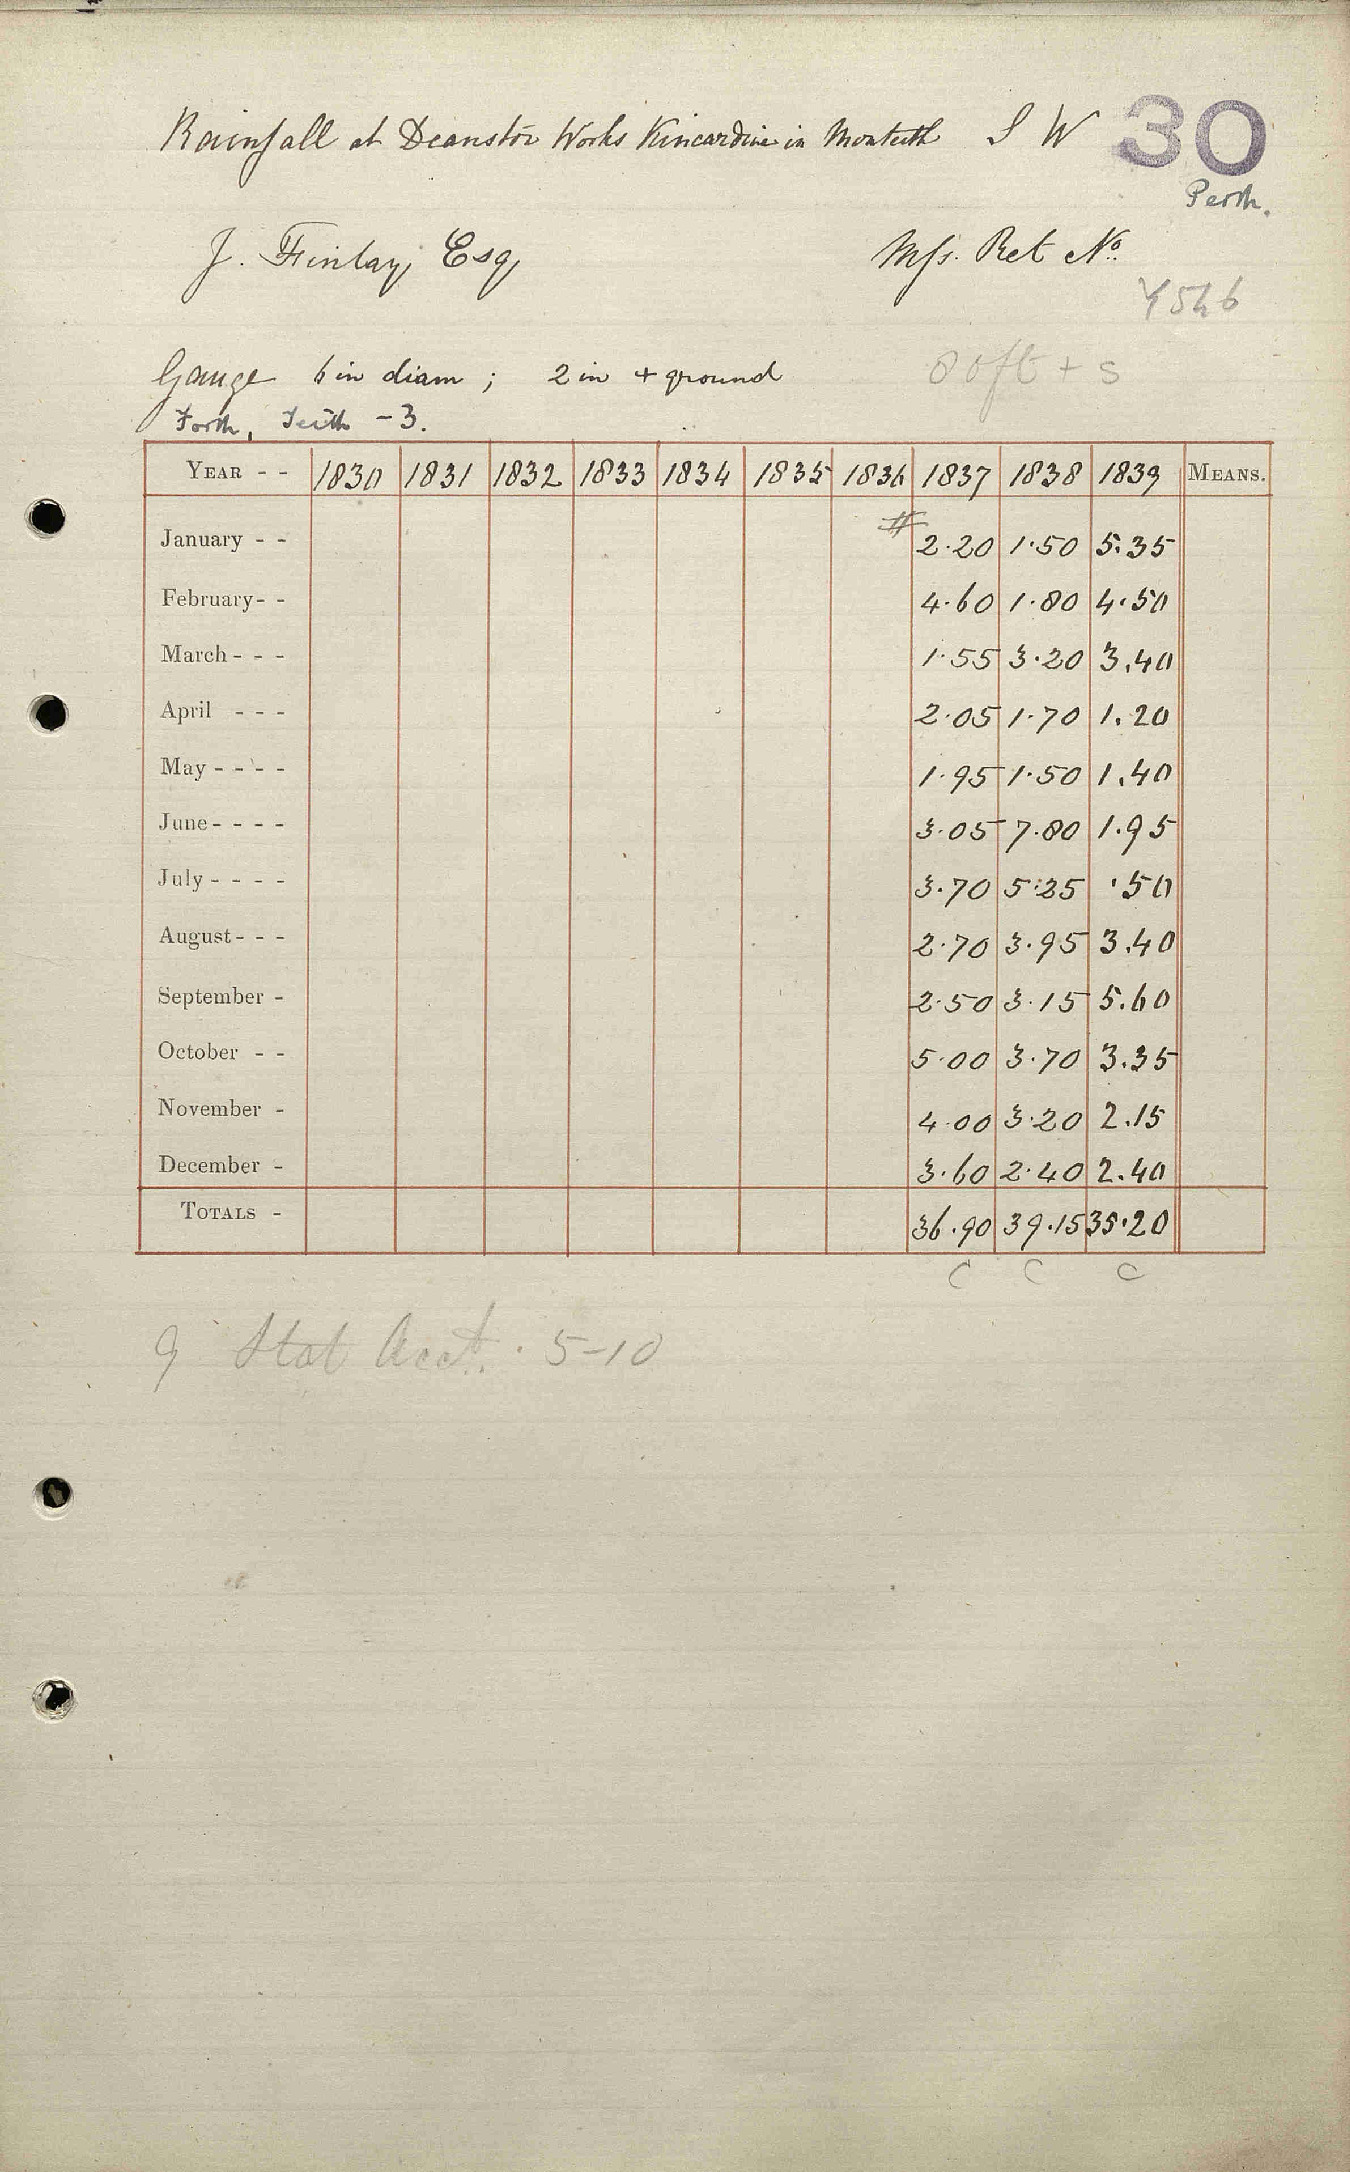 Rainfall at Deanston Works Kincardine in Monteith S W 30
Perth.
J. Finlay Esq Mss. Ret No.
Gauge 6 in diam ; 2 in + ground 80ft + s
Forth, Teith - 3.
YEAR - - 1830 1831 1832 1833 1834 1835 1836 1837 1838 1839 MEANS.
#
January - - 2.20 1.50 5.35
February - - 4.60 1.80 4.50
March - - - 1.55 3.20 3.40
April - - - 2.05 1.70 1.20
May - - - - 1.95 1.50 1.40
June - - - - 3.05 7.80 1.95
July - - - - 3.70 5.25 .50
August - - - 2.70 3.95 3.40
September - 2.50 3.15 5.60
October - - 5.00 3.70 3.35
November - 4.00 3.20 2.15
December - 3.60 2.40 2.40
TOTALS - 36.90 39.15 35.20
C C C
Stat Acct. 5-10